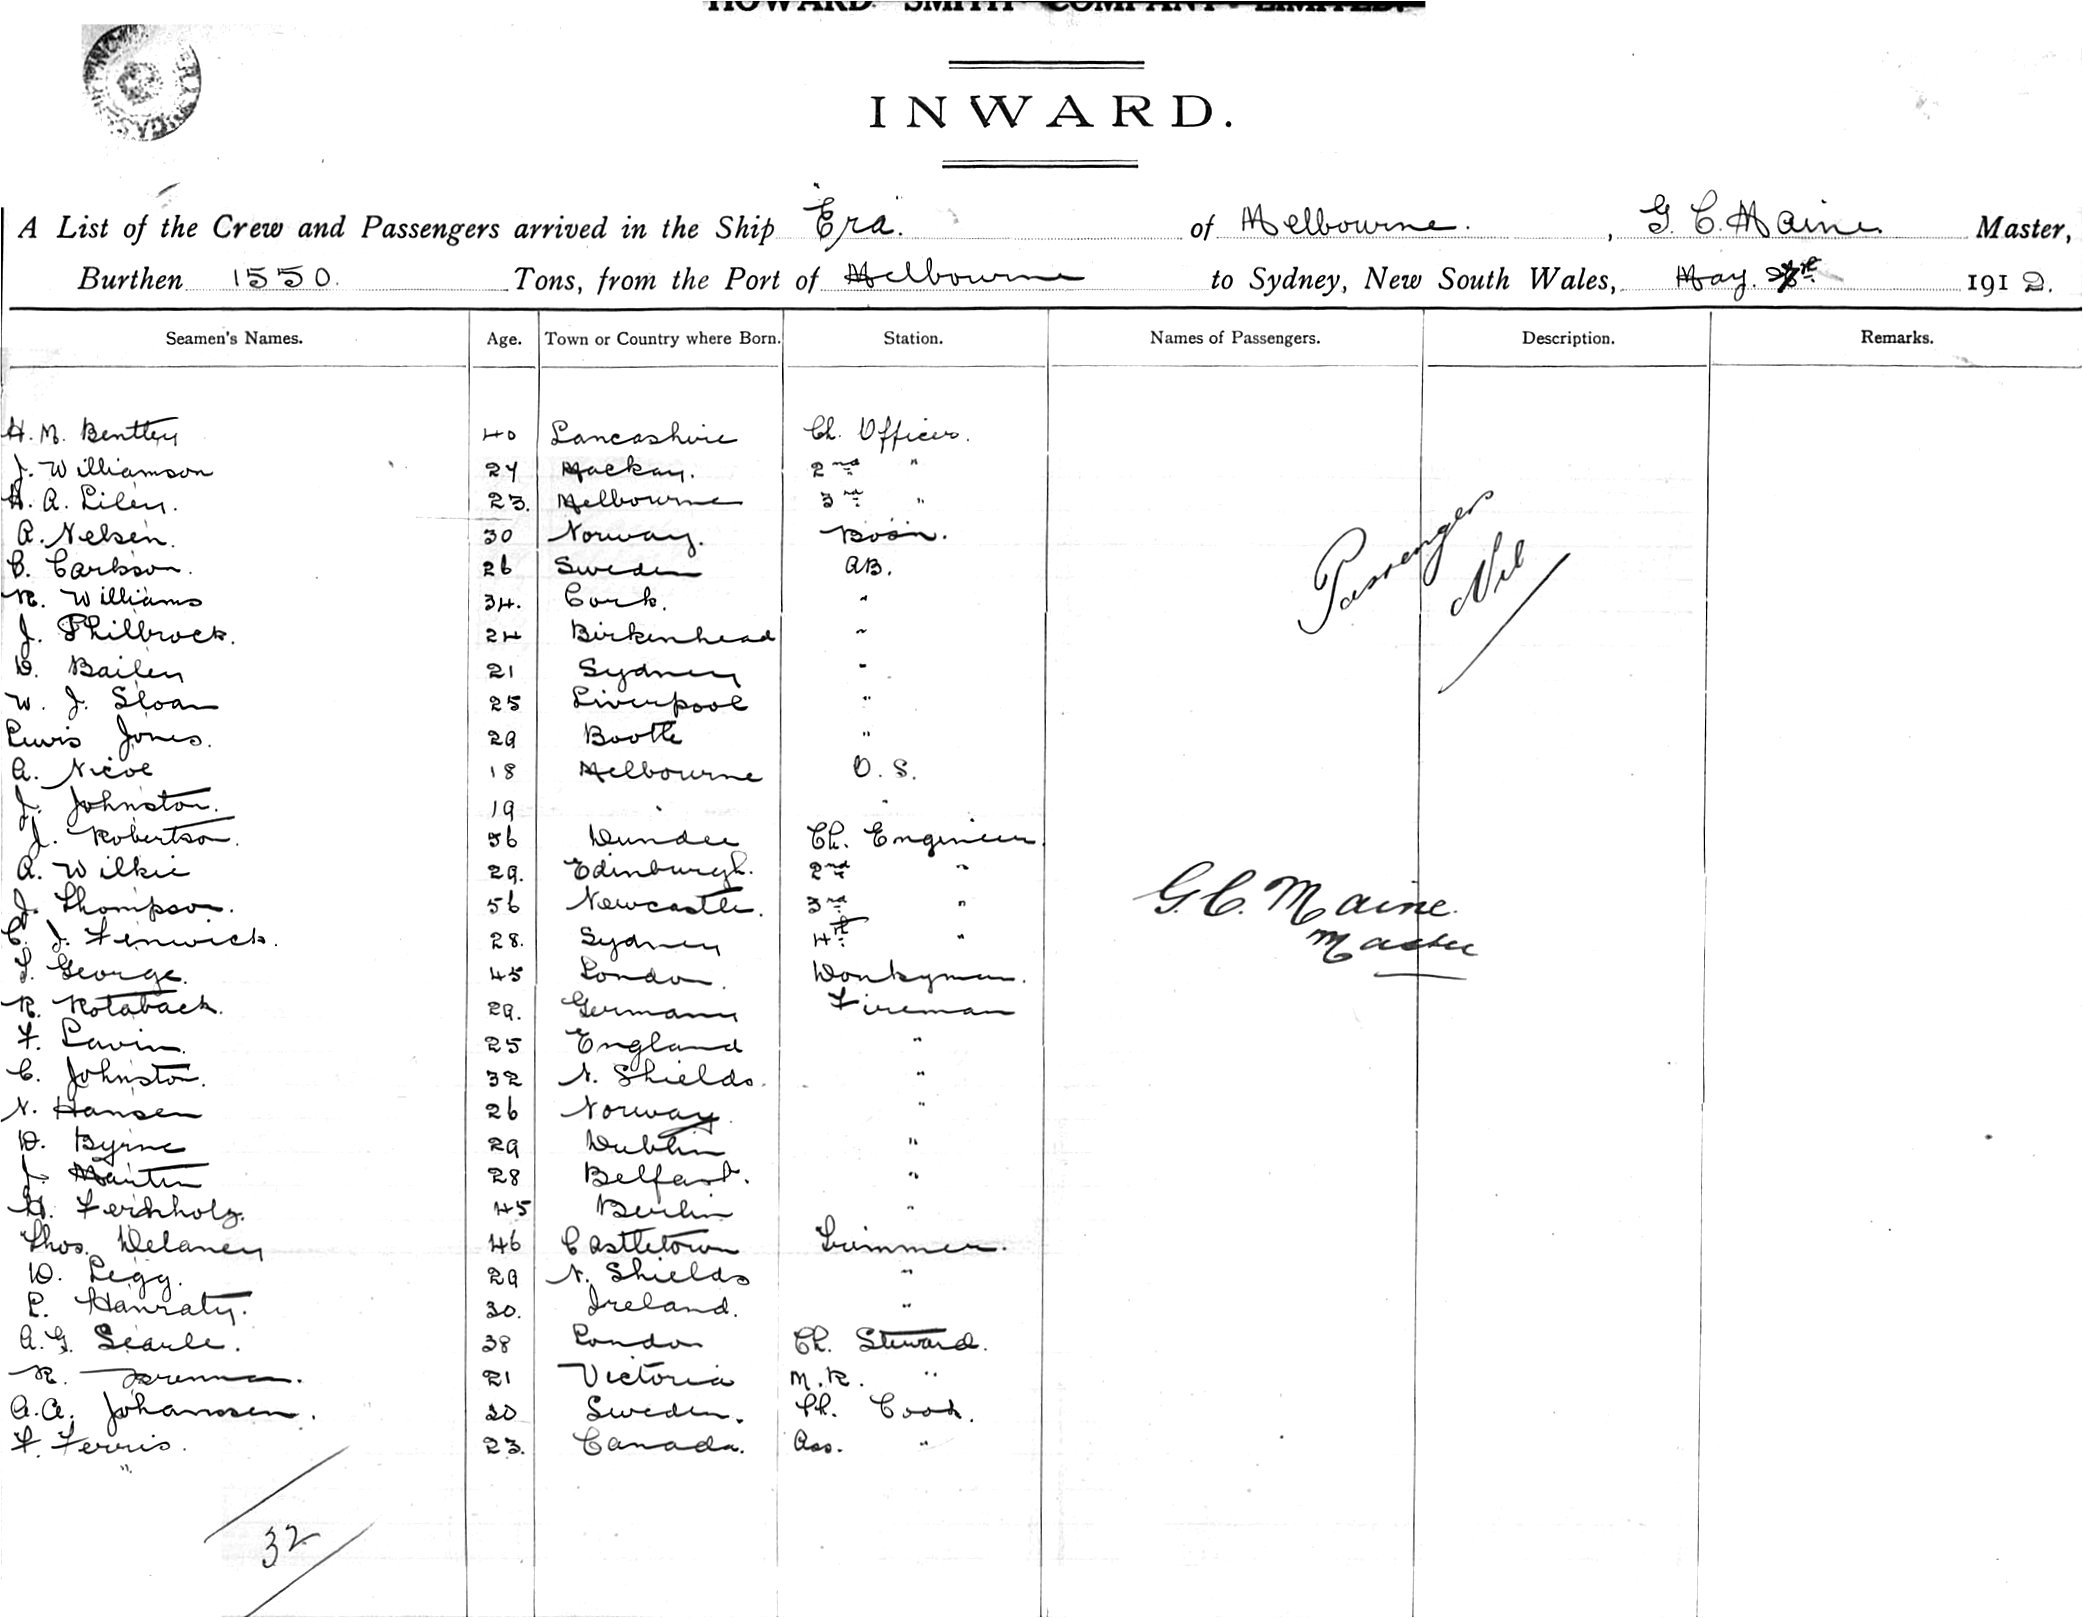 HOWARD SMITH COMPANY LIMITED.
INWARD.
A List of the Crew and Passengers arrived in the Ship "Era. of Melbourne. , G. C. Maine Master,
Burthen 1550. Tons, from the Port of Melbourne to Sydney, New South Wales, May. 1912.
Seamen's Names. Age. Town or Country where Born. Station. Names of Passengers. Description. Remarks.
H. M. Bentley 40 Lancashire Ch. Officer.
J. Williamson 24 Mackay. 2nd "
H. A. Liley. 23. Melbourne 3rd "
A. Nelsen. 30 Norway. Bosn.
C. Carlson. 26 Sweden AB.
R. Williams 34. Cork. "
J. Philbrock. 24 Birkenhead "
D. Bailey 21 Sydney "
W. J. Sloan 25 Liverpool "
Lewis Jones. 29 Bootle "
A. Nicol 18 Melbourne O. S.
J. Johnston. 19 " "
J. Robertson. 56 Dundee Ch. Engineer
A. Wilkie 29. Edinburgh. 2nd "
J. Thompson. 56 Newcastle. 3rd "
C. J. Fenwick. 28. Sydney 4th "
T. George. 45 London. Donkyman.
R. Rotaback. 29. Germany Fireman
F. Lavin. 25 England "
C. Johnston. 32 N. Shields. "
N. Hansen 26 Norway "
D. Byrne 29 Dublin "
J. Martin 28 Belfast. "
H. 45 Berlin "
Thos. Delaney 46 Castletown Trimmer.
D. Legg. 29 N. Shields "
P. Hanraty. 30. Ireland. "
A. G. Searle. 38 London Ch. Steward.
R. 21 Victoria M. R. "
A. A. Johanssen. 30 Sweden. Ch. Cook.
F. Ferris. 23. Canada. Ass. "
Passenger
Nil
G. C. Maine.
Master
32